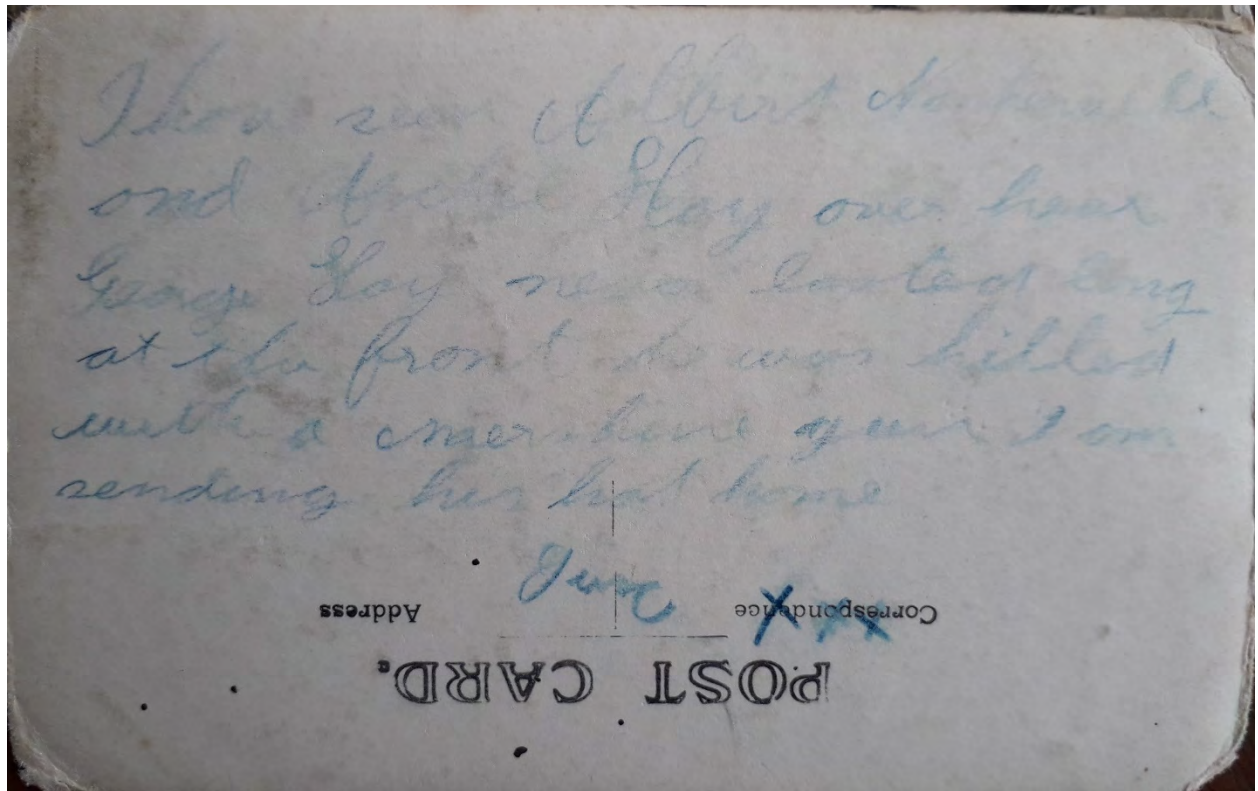 I have seen Albert
and Archie Hay over hear
George Hay never lasted long
at the front he was killed
with a mershine gun I am
sending his hat home
Correspondence
Address
POST CARD.